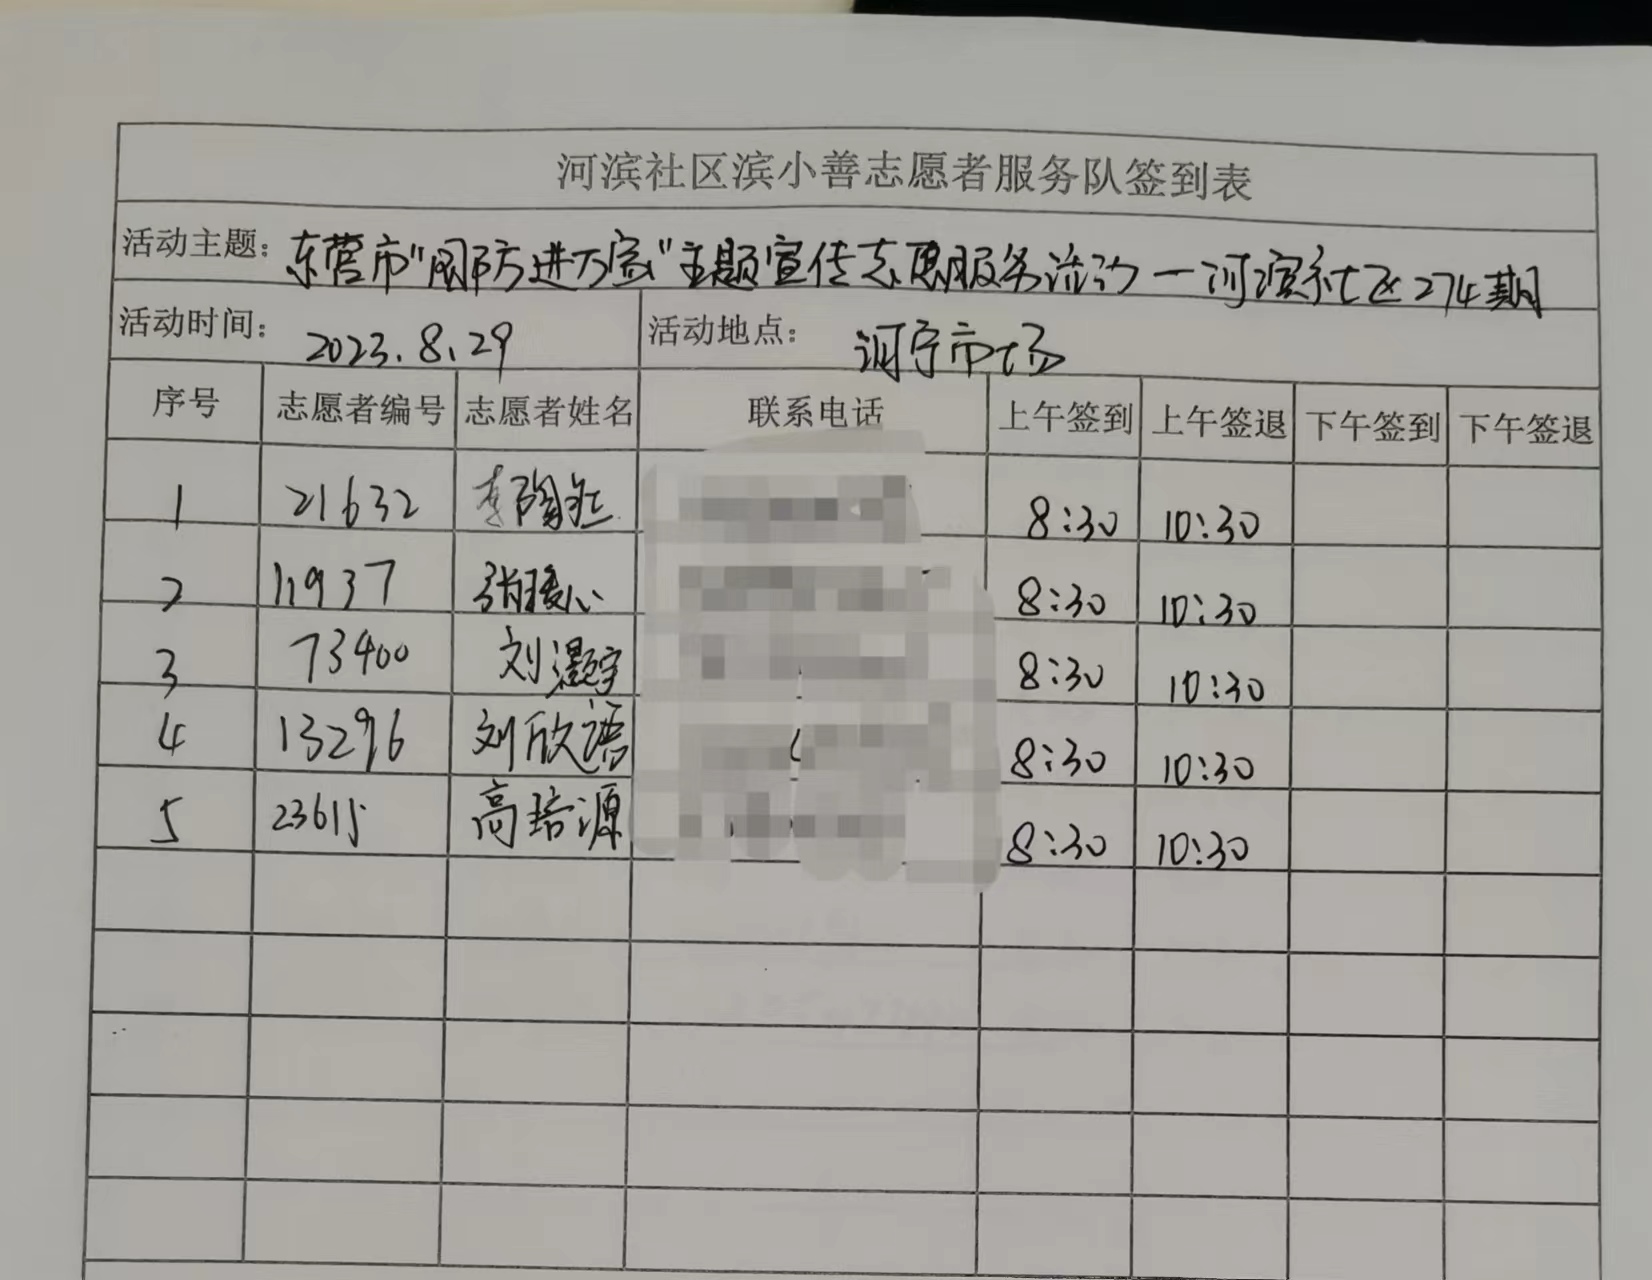 河滨社区滨小善志愿者服务队签到表
活动主题：东营市"国防进万家"主题宣传志愿服务活动一河滨社区274期
活动时间：2023.8.29 活动地点：河宁市场
序号 志愿者编号 志愿者姓名 联系电话 上午签到 上午签退 下午签到 下午签退
1 21632 李 8:30 10:30
2 11937 张 8:30 10:30
3 73400 刘灏宇 8:30 10:30
4 13296 刘欣语 8:30 10:30
5 23615 高培源 8:30 10:30